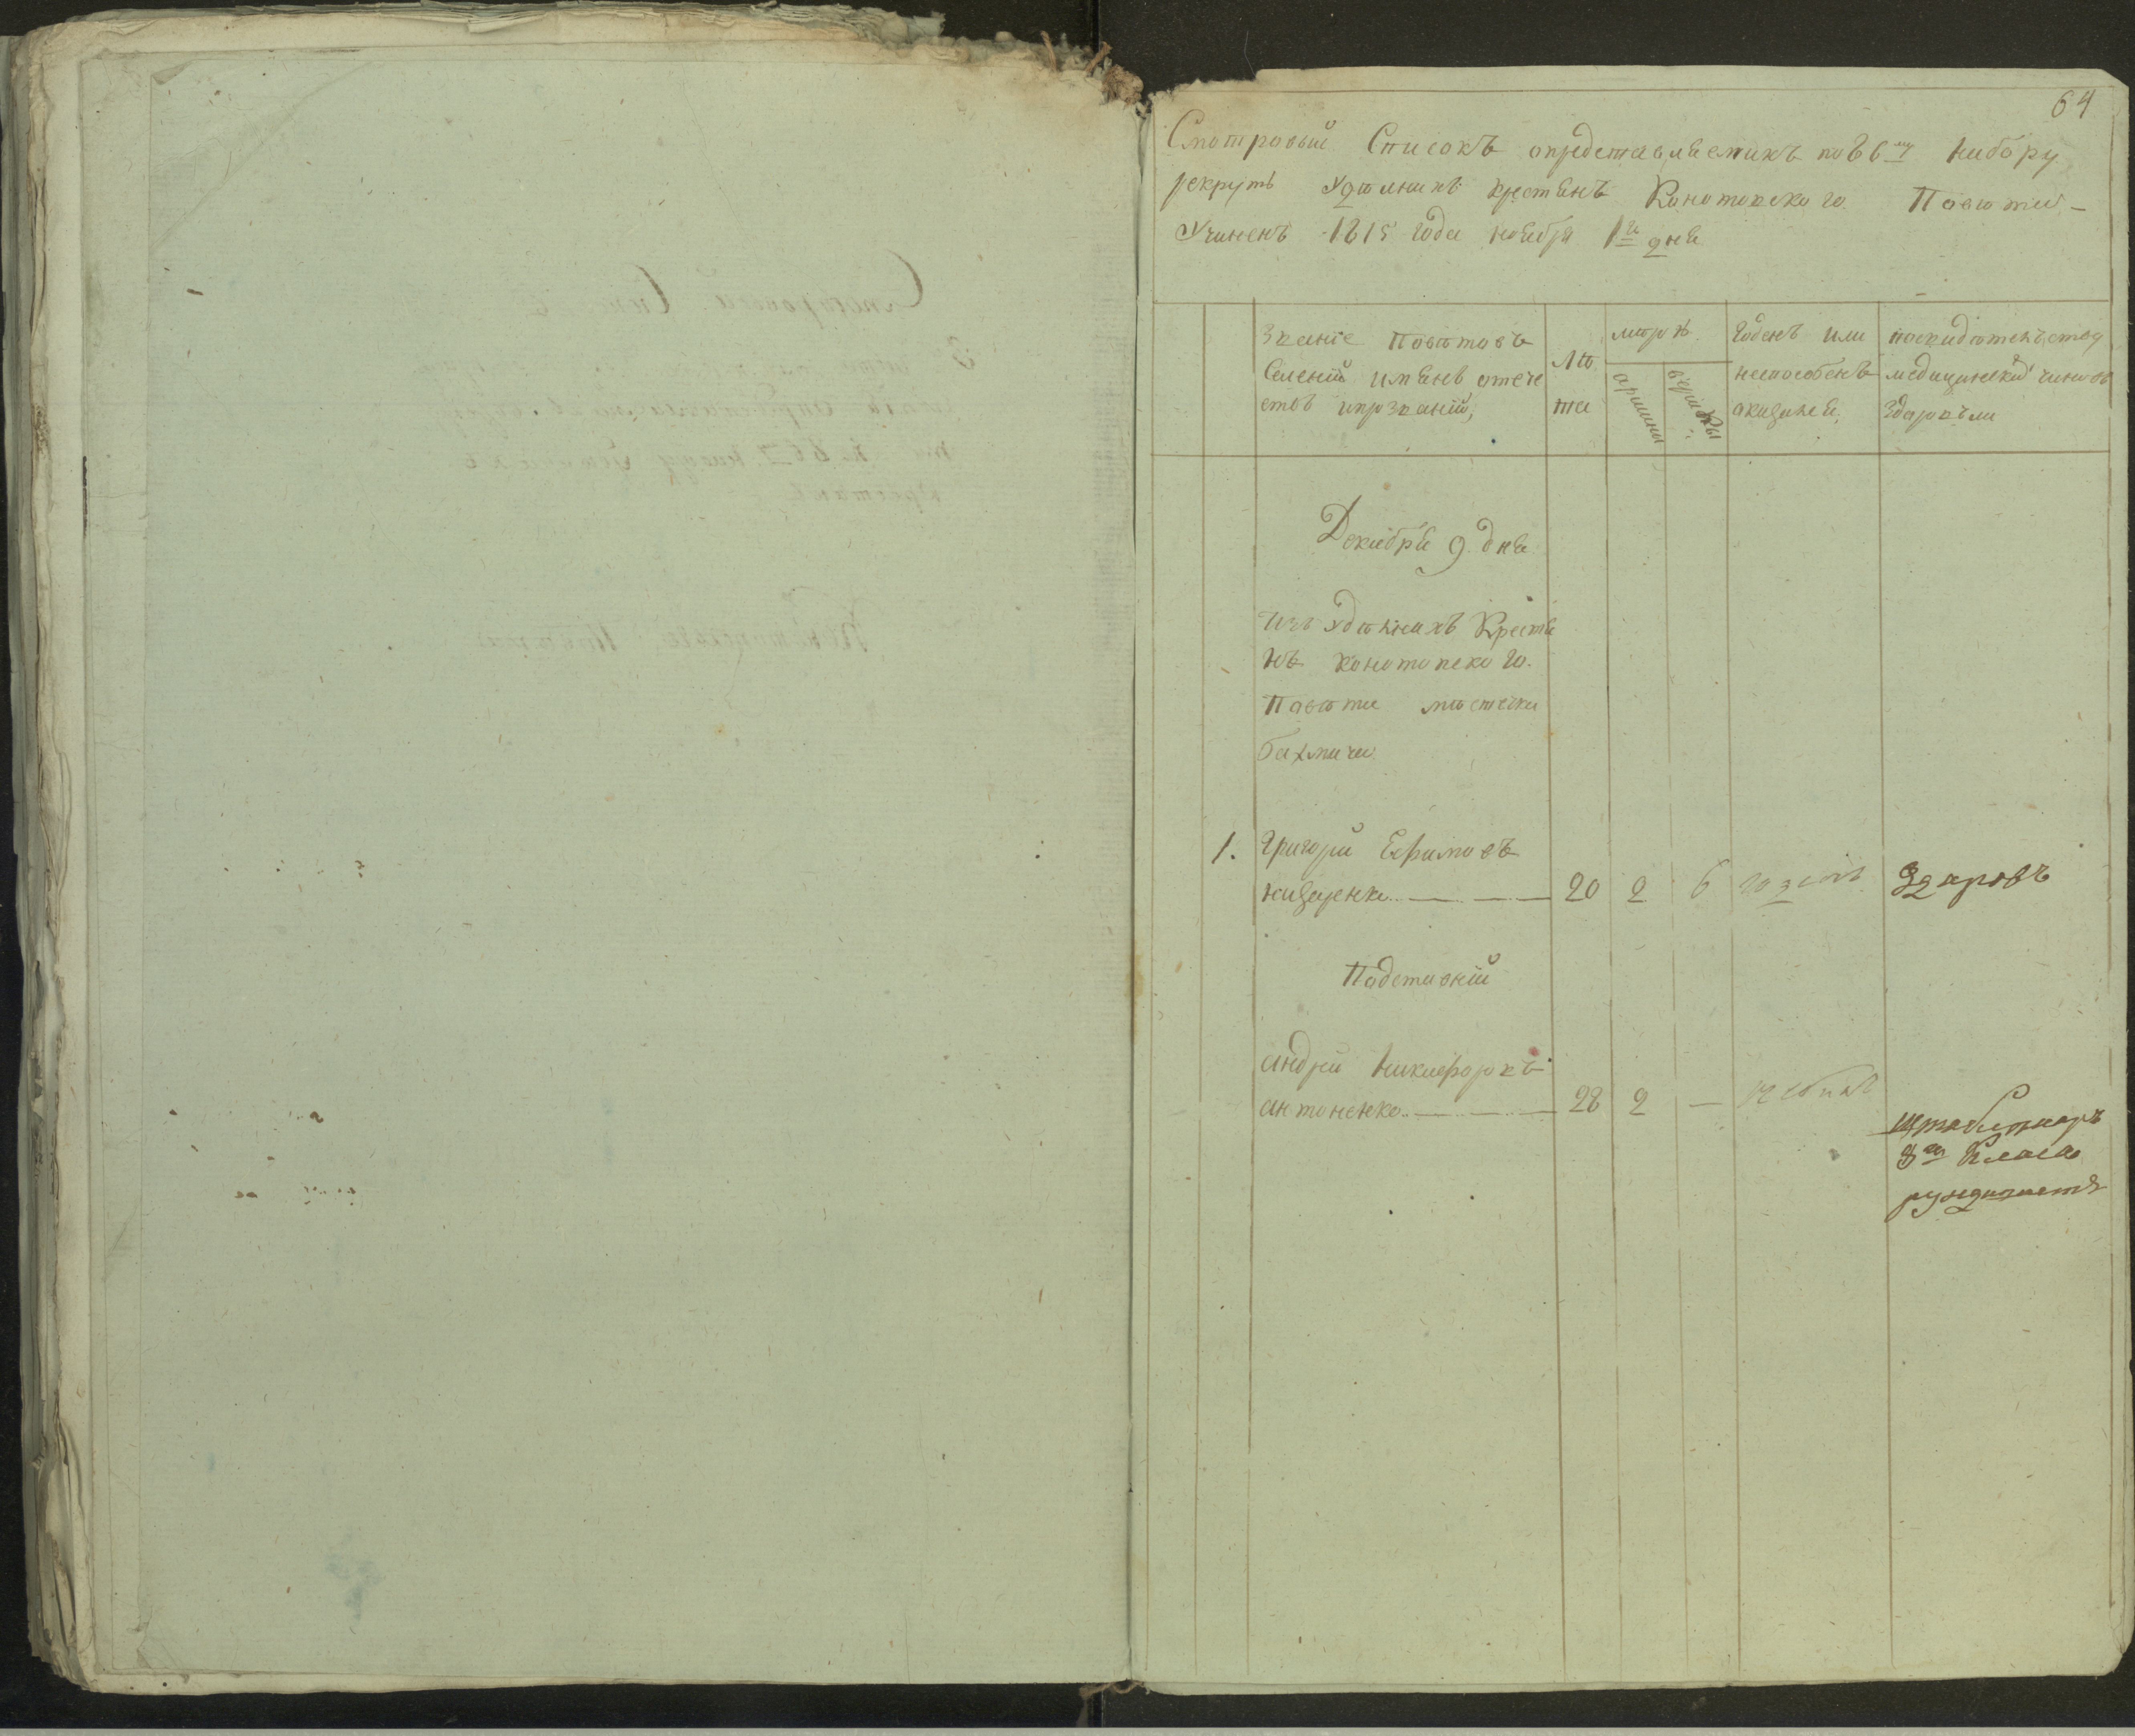 64
Смотровый Списокъ опредставляемихъ по 86му набору
рекрутъ Удѣлнихъ крестянъ Конотопского Повѣта
Учиненъ 1815 года ноября 1го дня
Звание Повѣтовъ
Селений имянъ отече
ствъ ипрозваний,
лѣ
та
мѣрѣ
аршины
вершки
Годенъ или
неспособенъ
посвидѣтелству
медицинских чиновъ
здоровъ ли
Декабря 9 дня
изъ Удѣлнихъ Крестя
нъ Конотопского
Повѣта мѣстечка
бахмача
1. Григорий Ефимовъ
20 2 6 годенъ Здоровъ
Подставний
андрей Никифоровъ
антоненко 28 2 —
Штаблекарь
8го Класа